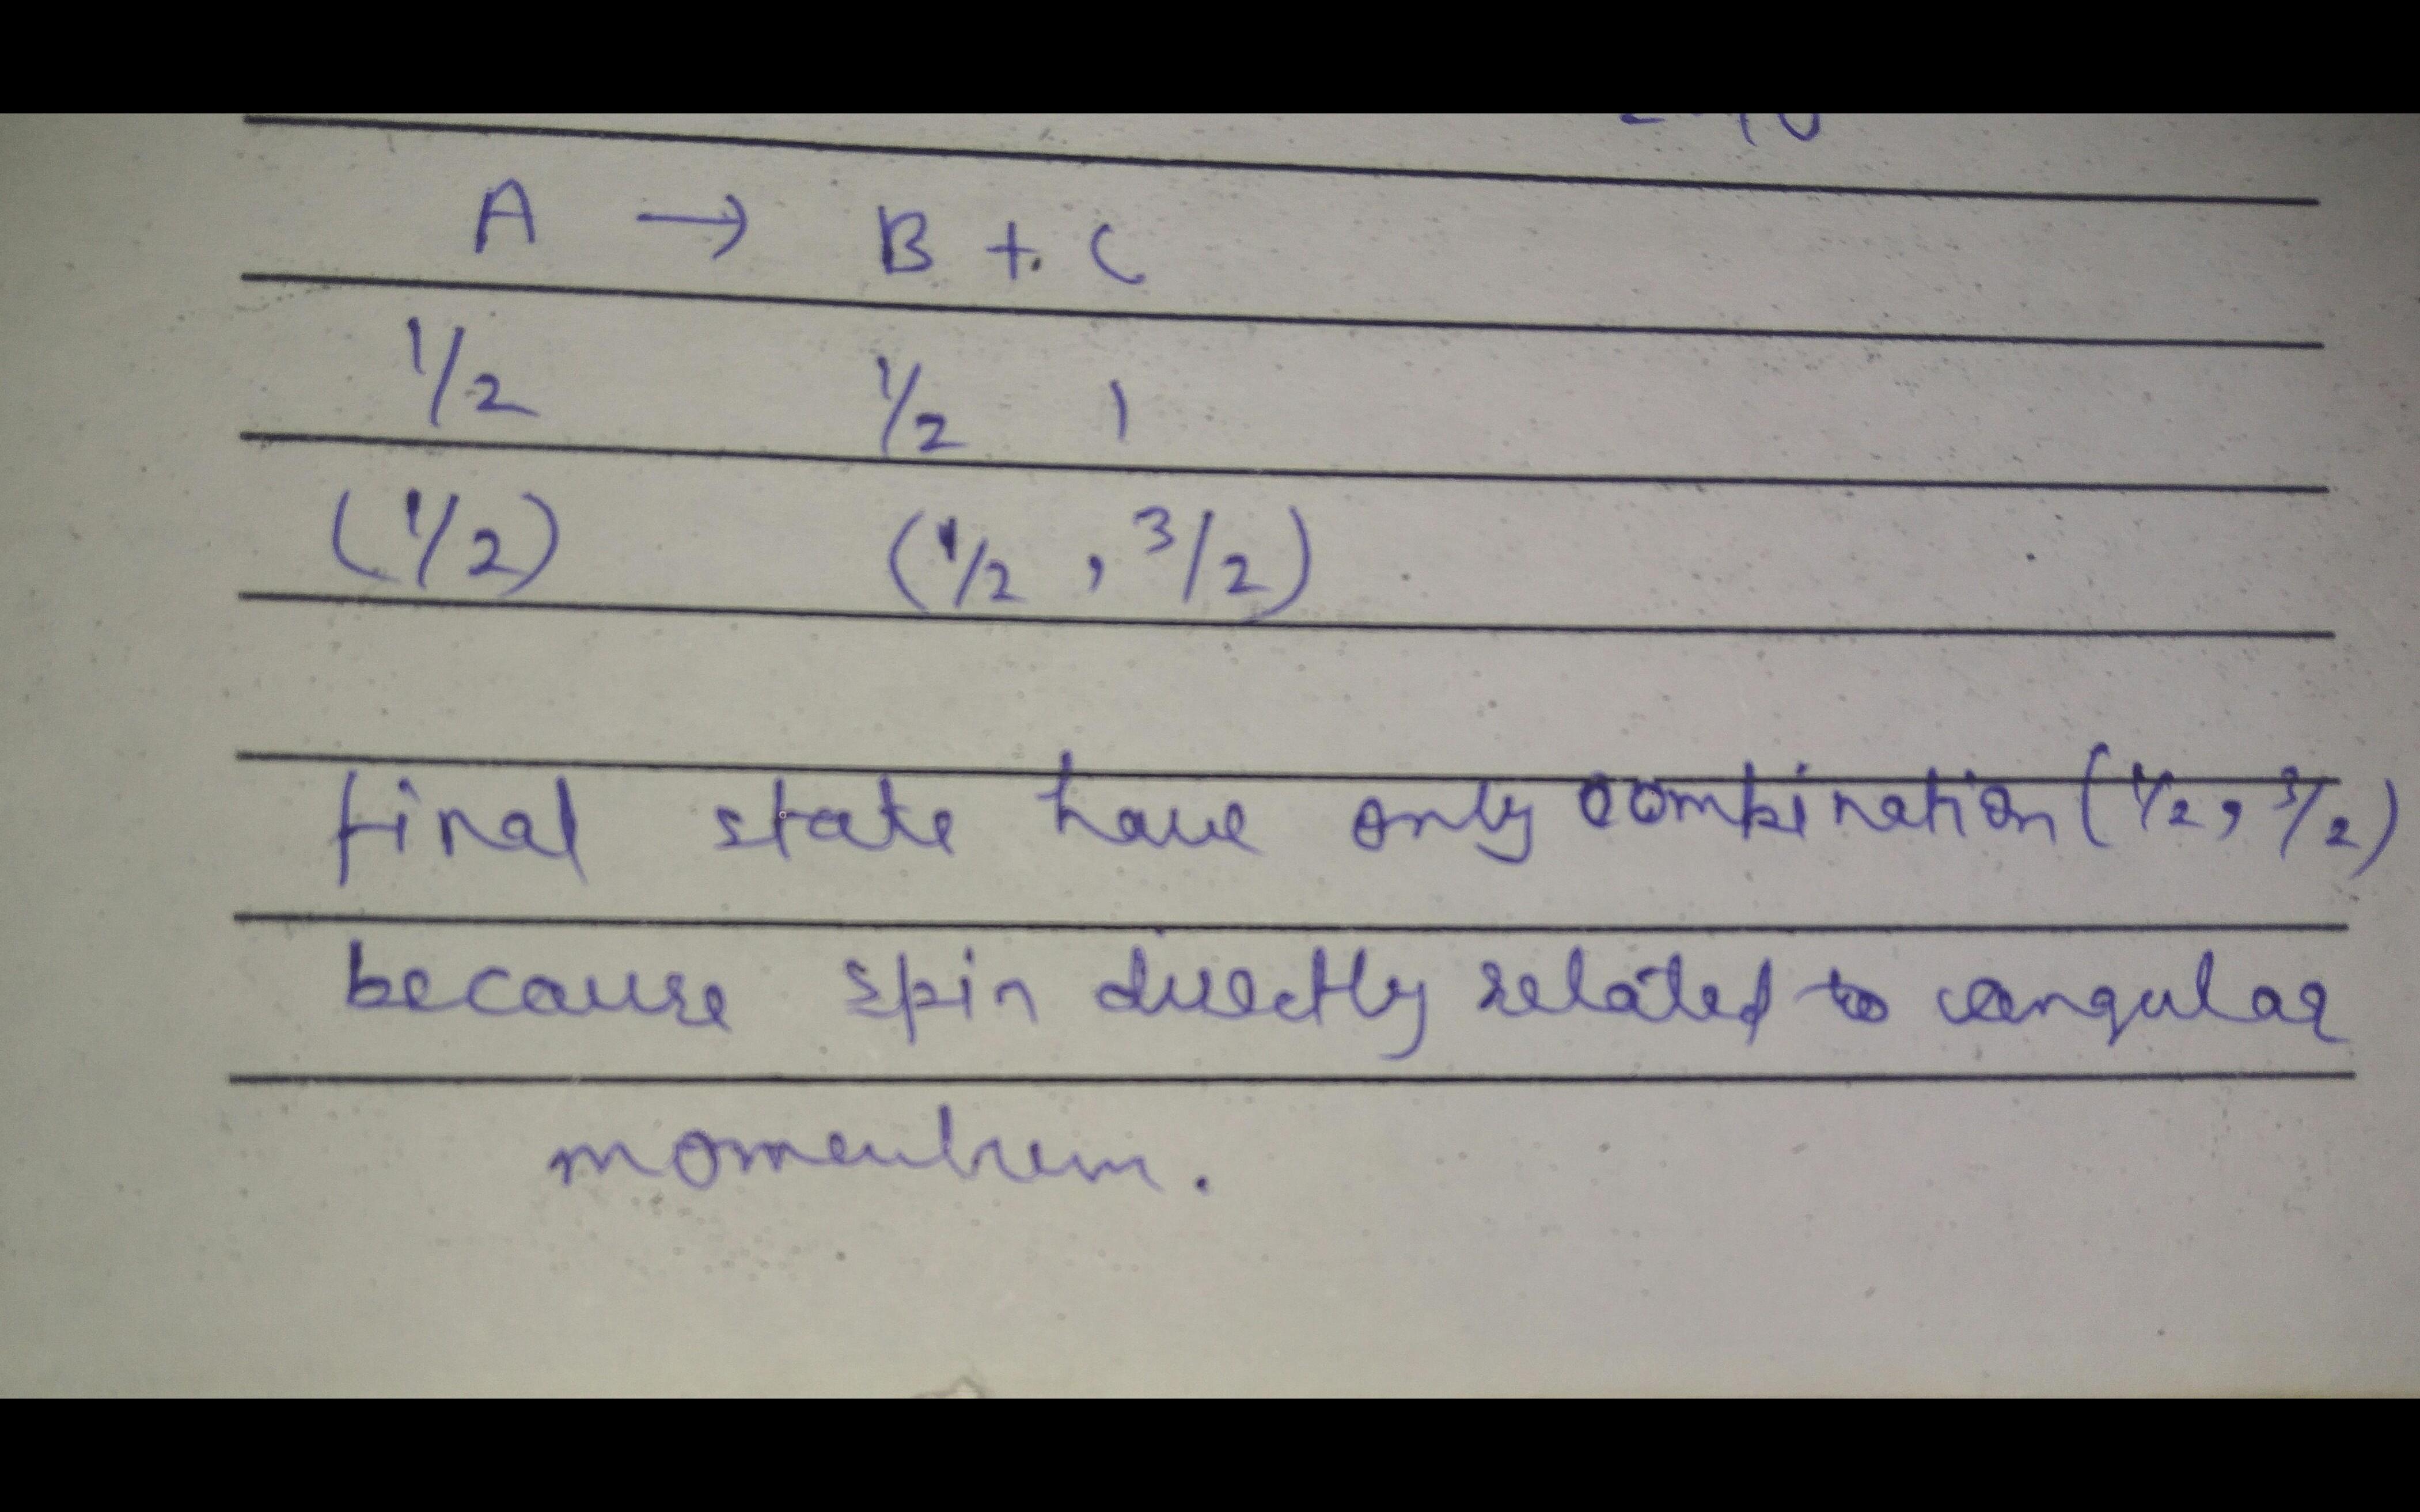 A → B + C
1/2 1/2 1
(1/2) (1/2, 3/2)
final state have only combination (1/2, 3/2)
because spin directly related to angular
momentum.